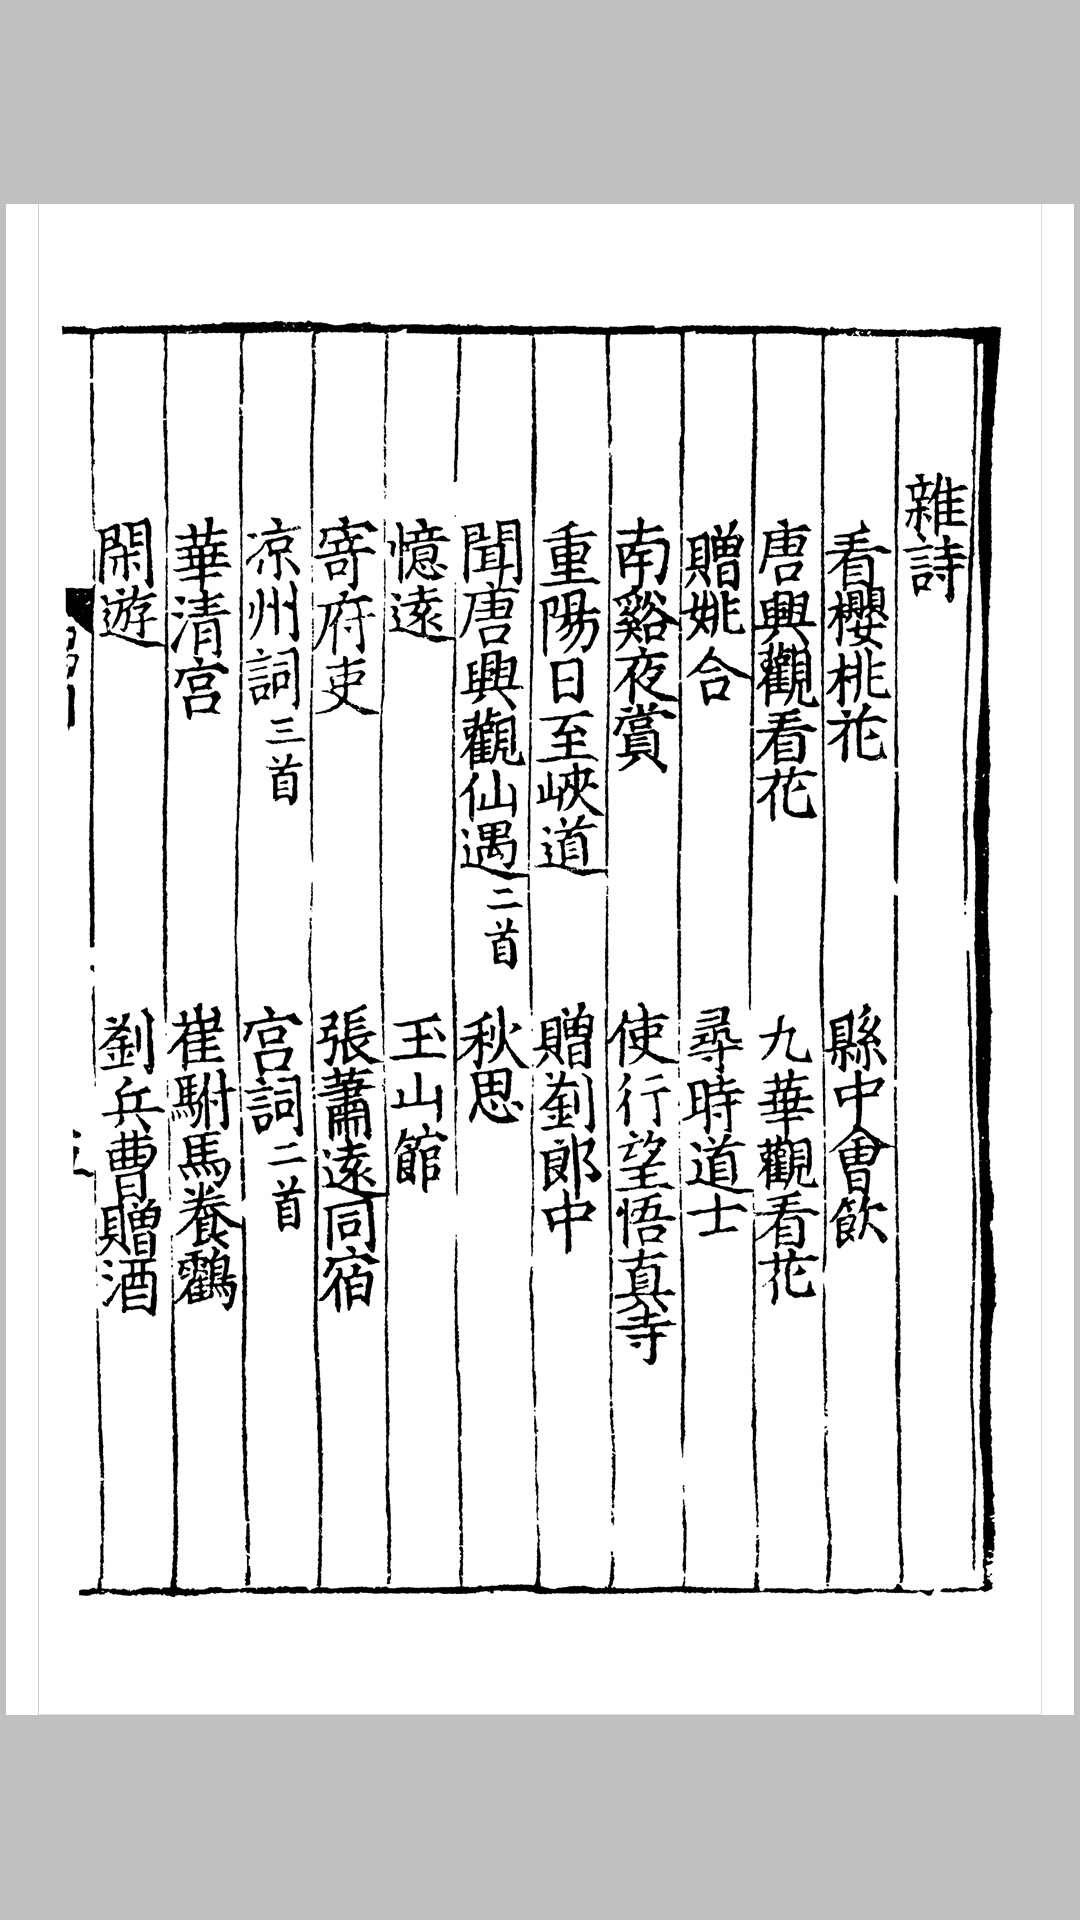 雜詩
看櫻桃花　縣中會飲
唐興觀看花　九華觀看花
贈姚合　尋時道士
南谿夜賞　使行望悟真寺
重陽日至峽道　贈劉郎中
聞唐興觀仙遇二首　秋思
憶遠　玉山館
寄府吏　張蕭遠同宿
凉州詞三首　宫詞二首
華清宫　崔駙馬養鶴
閑遊　劉兵曹贈酒